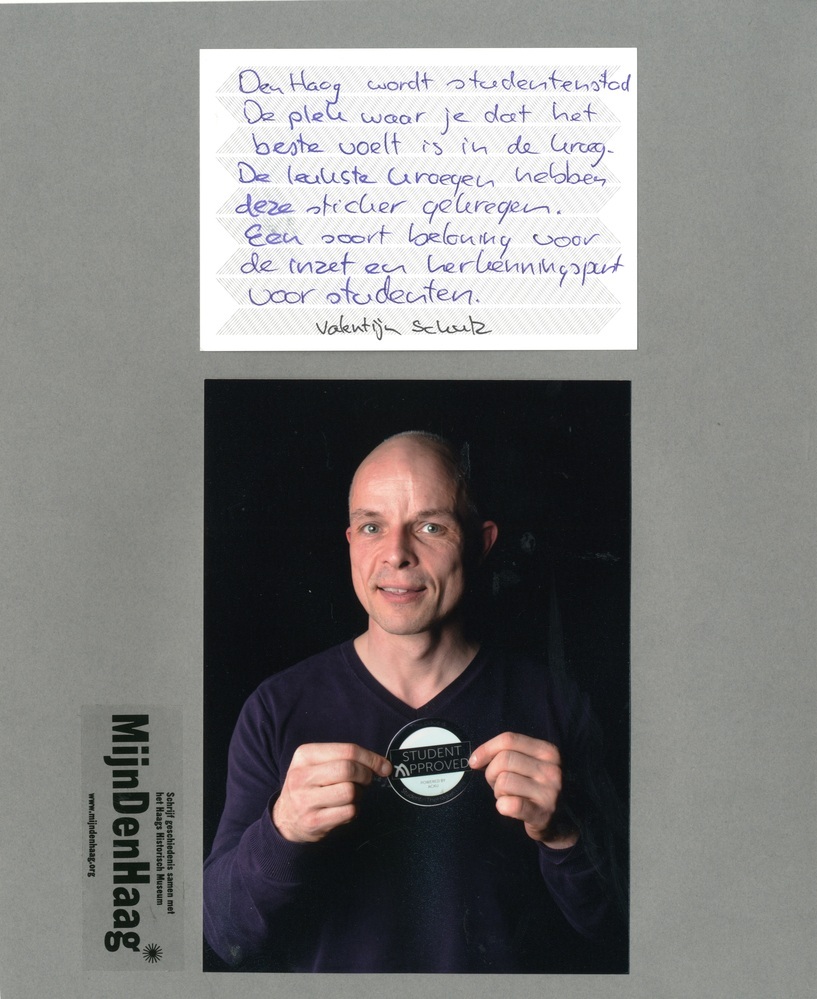 Den Haag wordt studentenstad
De plek waar je dat het
beste voelt is in de kroeg.
De leukste kroegen hebben
deze sticker gekregen.
Een soort beloning voor
de inzet en herkenningspunt
voor studenten.
Valentijn
STUDENT
APPROVED
POWERED BY
MijnDenHaag
Schrijf geschiedenis samen met
het Haags Historisch Museum
www.mijndenhaag.org